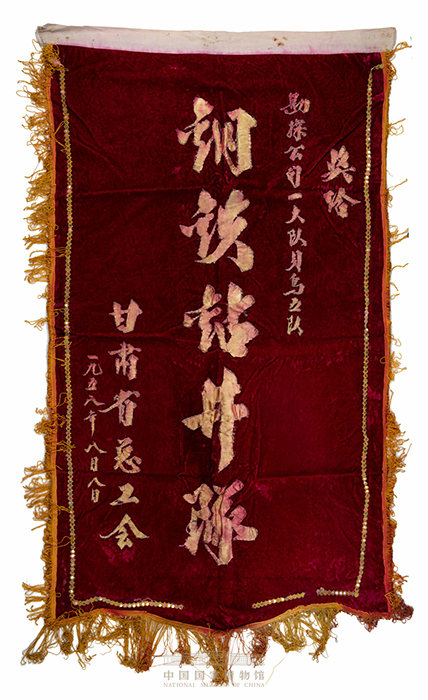 奖给
勘探公司一大队贝乌五队
钢铁钻井队
甘肃省总工会
一九五八年八月八日
中国国家博物馆
NATIONAL MUSEUM OF CHINA